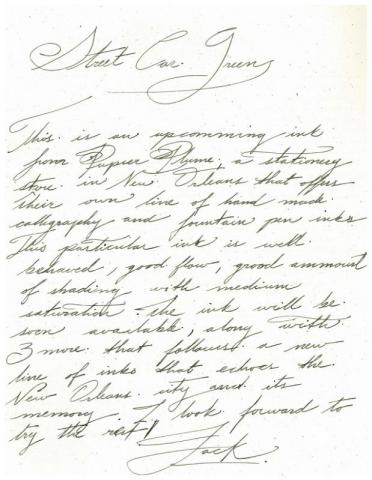 Street Car Green
This is an upcomming ink
from Papier Plume, a stationery
store in New Orleans that offers
their own line of hand made
calligraphy and fountain pen inks
This particular ink is well
behaved, good flow, good ammount
of shading with medium
saturation. The ink will be
soon available, along with
3 more that follows a new
line of inks that echoes the
New Orleans city and its
memory. I look forward to
try the rest!
Jack.